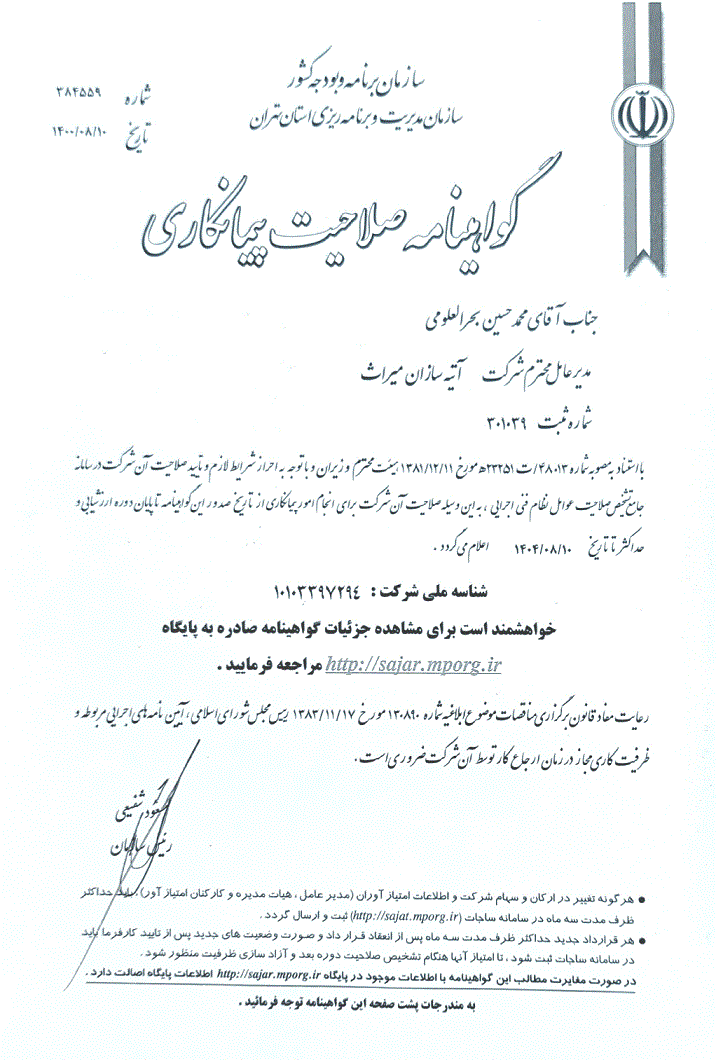 سازمان برنامه و بودجه کشور
سازمان مدیریت و برنامه ریزی استان تهران
شماره ۳۸۴۵۵۹
تاریخ ۱۴۰۰/۰۸/۱۰
گواهینامه صلاحیت پیمانکاری
جناب آقای محمد حسین بحرالعلومی
مدیر عامل محترم شرکت آتیه سازان میراث
شماره ثبت ۳۰۱۰۳۹
با استناد به مصوبه شماره ۴۸۰۱۳/ت۲۳۲۵۱ه مورخ ۱۳۸۱/۱۲/۱۱ هیئت محترم وزیران و با توجه به احراز شرایط لازم و تایید صلاحیت آن شرکت در سامانه
جامع تشخیص صلاحیت عوامل نظام فنی اجرایی ، به این وسیله صلاحیت آن شرکت برای انجام امور پیمانکاری از تاریخ صدور این گواهینامه تا پایان دوره ارزشیابی و
حداکثر تا تاریخ ۱۴۰۴/۰۸/۱۰ اعلام می گردد .
شناسه ملی شرکت : ۱۰۱۰۳۳۹۷۲۹۴
خواهشمند است برای مشاهده جزئیات گواهینامه صادره به پایگاه
http://sajar.mporg.ir مراجعه فرمایید .
رعایت مفاد قانون برگزاری مناقصات موضوع ابلاغیه شماره ۱۳۰۸۹۰ مورخ ۱۳۸۳/۱۱/۱۷ رییس مجلس شورای اسلامی ، آیین نامه های اجرایی مربوطه و
ظرفیت کاری مجاز در زمان ارجاع کار توسط آن شرکت ضروری است .
مسعود شفیعی
رئیس سازمان
● هر گونه تغییر در ارکان و سهام شرکت و اطلاعات امتیاز آوران (مدیر عامل ، هیات مدیره و کارکنان امتیاز آور) ، باید حداکثر
ظرف مدت سه ماه در سامانه ساجات (http://sajat.mporg.ir) ثبت و ارسال گردد .
● هر قرارداد جدید حداکثر ظرف مدت سه ماه پس از انعقاد قرار داد و صورت وضعیت های جدید پس از تایید کارفرما باید
در سامانه ساجات ثبت شود ، تا امتیاز آنها هنگام تشخیص صلاحیت دوره بعد و آزاد سازی ظرفیت منظور شود .
در صورت مغایرت مطالب این گواهینامه با اطلاعات موجود در پایگاه http://sajar.mporg.ir اطلاعات پایگاه اصالت دارد .
به مندرجات پشت صفحه این گواهینامه توجه فرمائید .